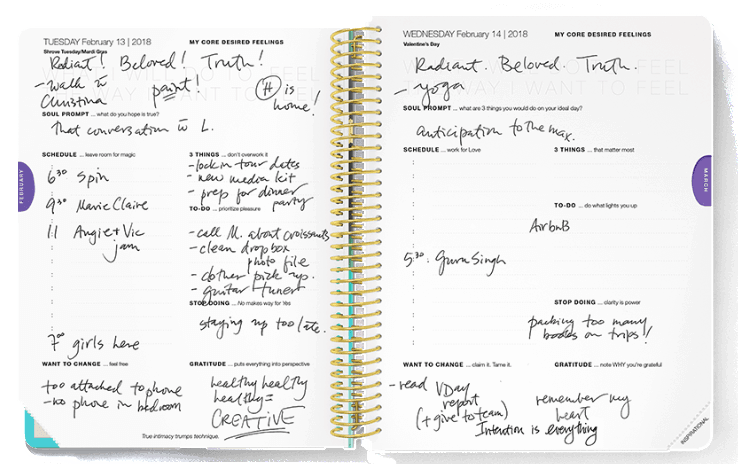 TUESDAY February 13 | 2018
Shrove Tuesday/Mardi Gras
MY CORE DESIRED FEELINGS
Radiant! Beloved! Truth!
- walk w
Christina
paint!
(H) is
home!
SOUL PROMPT ... what do you hope is true?
That conversation w L.
SCHEDULE ... leave room for magic
6:30 Spin
9:30 Marie Claire
11 Angie + Vic
jam
7:00 girls here
3 THINGS ... don't overwork it
- lock in tour dates
- new media kit
- prep for dinner
party
TO-DO ... prioritize pleasure
- call M. about croissants
- clean dropbox
photo file
- clother pick up.
- guitar tuner
STOP DOING ... No makes way for Yes
staying up too late.
WANT TO CHANGE ... feel free
too attached to phone
- no phone in bedroom
GRATITUDE ... puts everything into perspective
healthy healthy
healthy =
CREATIVE
True intimacy trumps technique.
FEBRUARY
WEDNESDAY February 14 | 2018
Valentine's Day
MY CORE DESIRED FEELINGS
Radiant. Beloved. Truth.
- yoga
SOUL PROMPT ... what are 3 things you would do on your ideal day?
Anticipation to the max.
SCHEDULE ... work for Love
5:30. Guru Singh
3 THINGS ... that matter most
TO-DO ... do what lights you up
AirbnB
STOP DOING ... clarity is power
packing too many
books on trips!!
WANT TO CHANGE ... claim it. Tame it.
- read VDay
report
(+ give to team)
GRATITUDE ... note WHY you're grateful
remember my
heart
Intention is everything
MARCH
INSPIRATIONAL